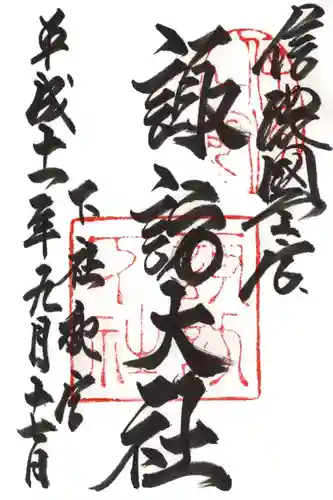 信濃國一之宮
諏訪大社
下社秋宮
平成十一年九月